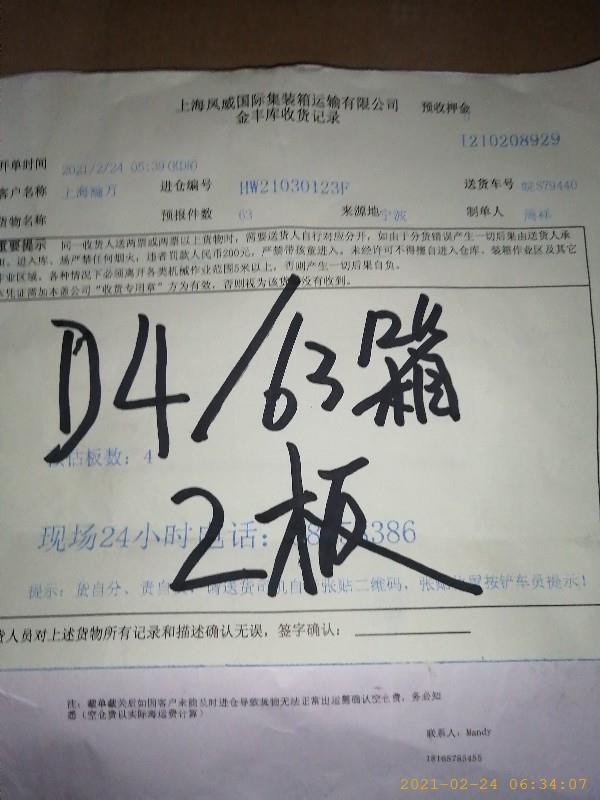 上海风威国际集装箱运输有限公司 预收押金
金丰库收货记录
I210208929
开单时间 2021/2/24 05:39(KDR)
客户名称 上海瀚万 进仓编号 HW21030123F 送货车号 皖S79440
货物名称 预报件数 63 来源地 宁波 制单人 周祥
重要提示 同一收货人送两票或两票以上货物时,需要送货人自行对应分开,如由于分货错误产生一切后果由送货人承
担,进入库、场严禁任何烟火,违者罚款人民币200元,严禁带孩童进入。未经许可不得擅自进入仓库、装箱作业区及其它
作业区域,各种情况下必须离开各类机械作业范围5米以上,否则产生一切后果自负。
本凭证需加本盖公司“收货专用章”方为有效,否则视为该货物没有收到。
D4/63箱
预估板数:4
2板
现场24小时电话: 386
提示:货自分、责自负,请送货司机自行张贴二维码,张贴位置按铲车员提示!
货人员对上述货物所有记录和描述确认无误,签字确认:
注:截单截关后如因客户未能及时进仓导致货物无法正常出运需确认空仓费,务必知
悉(空仓费以实际海运费计算)
联系人:Mandy
18165785455
2021-02-24 06:34:07